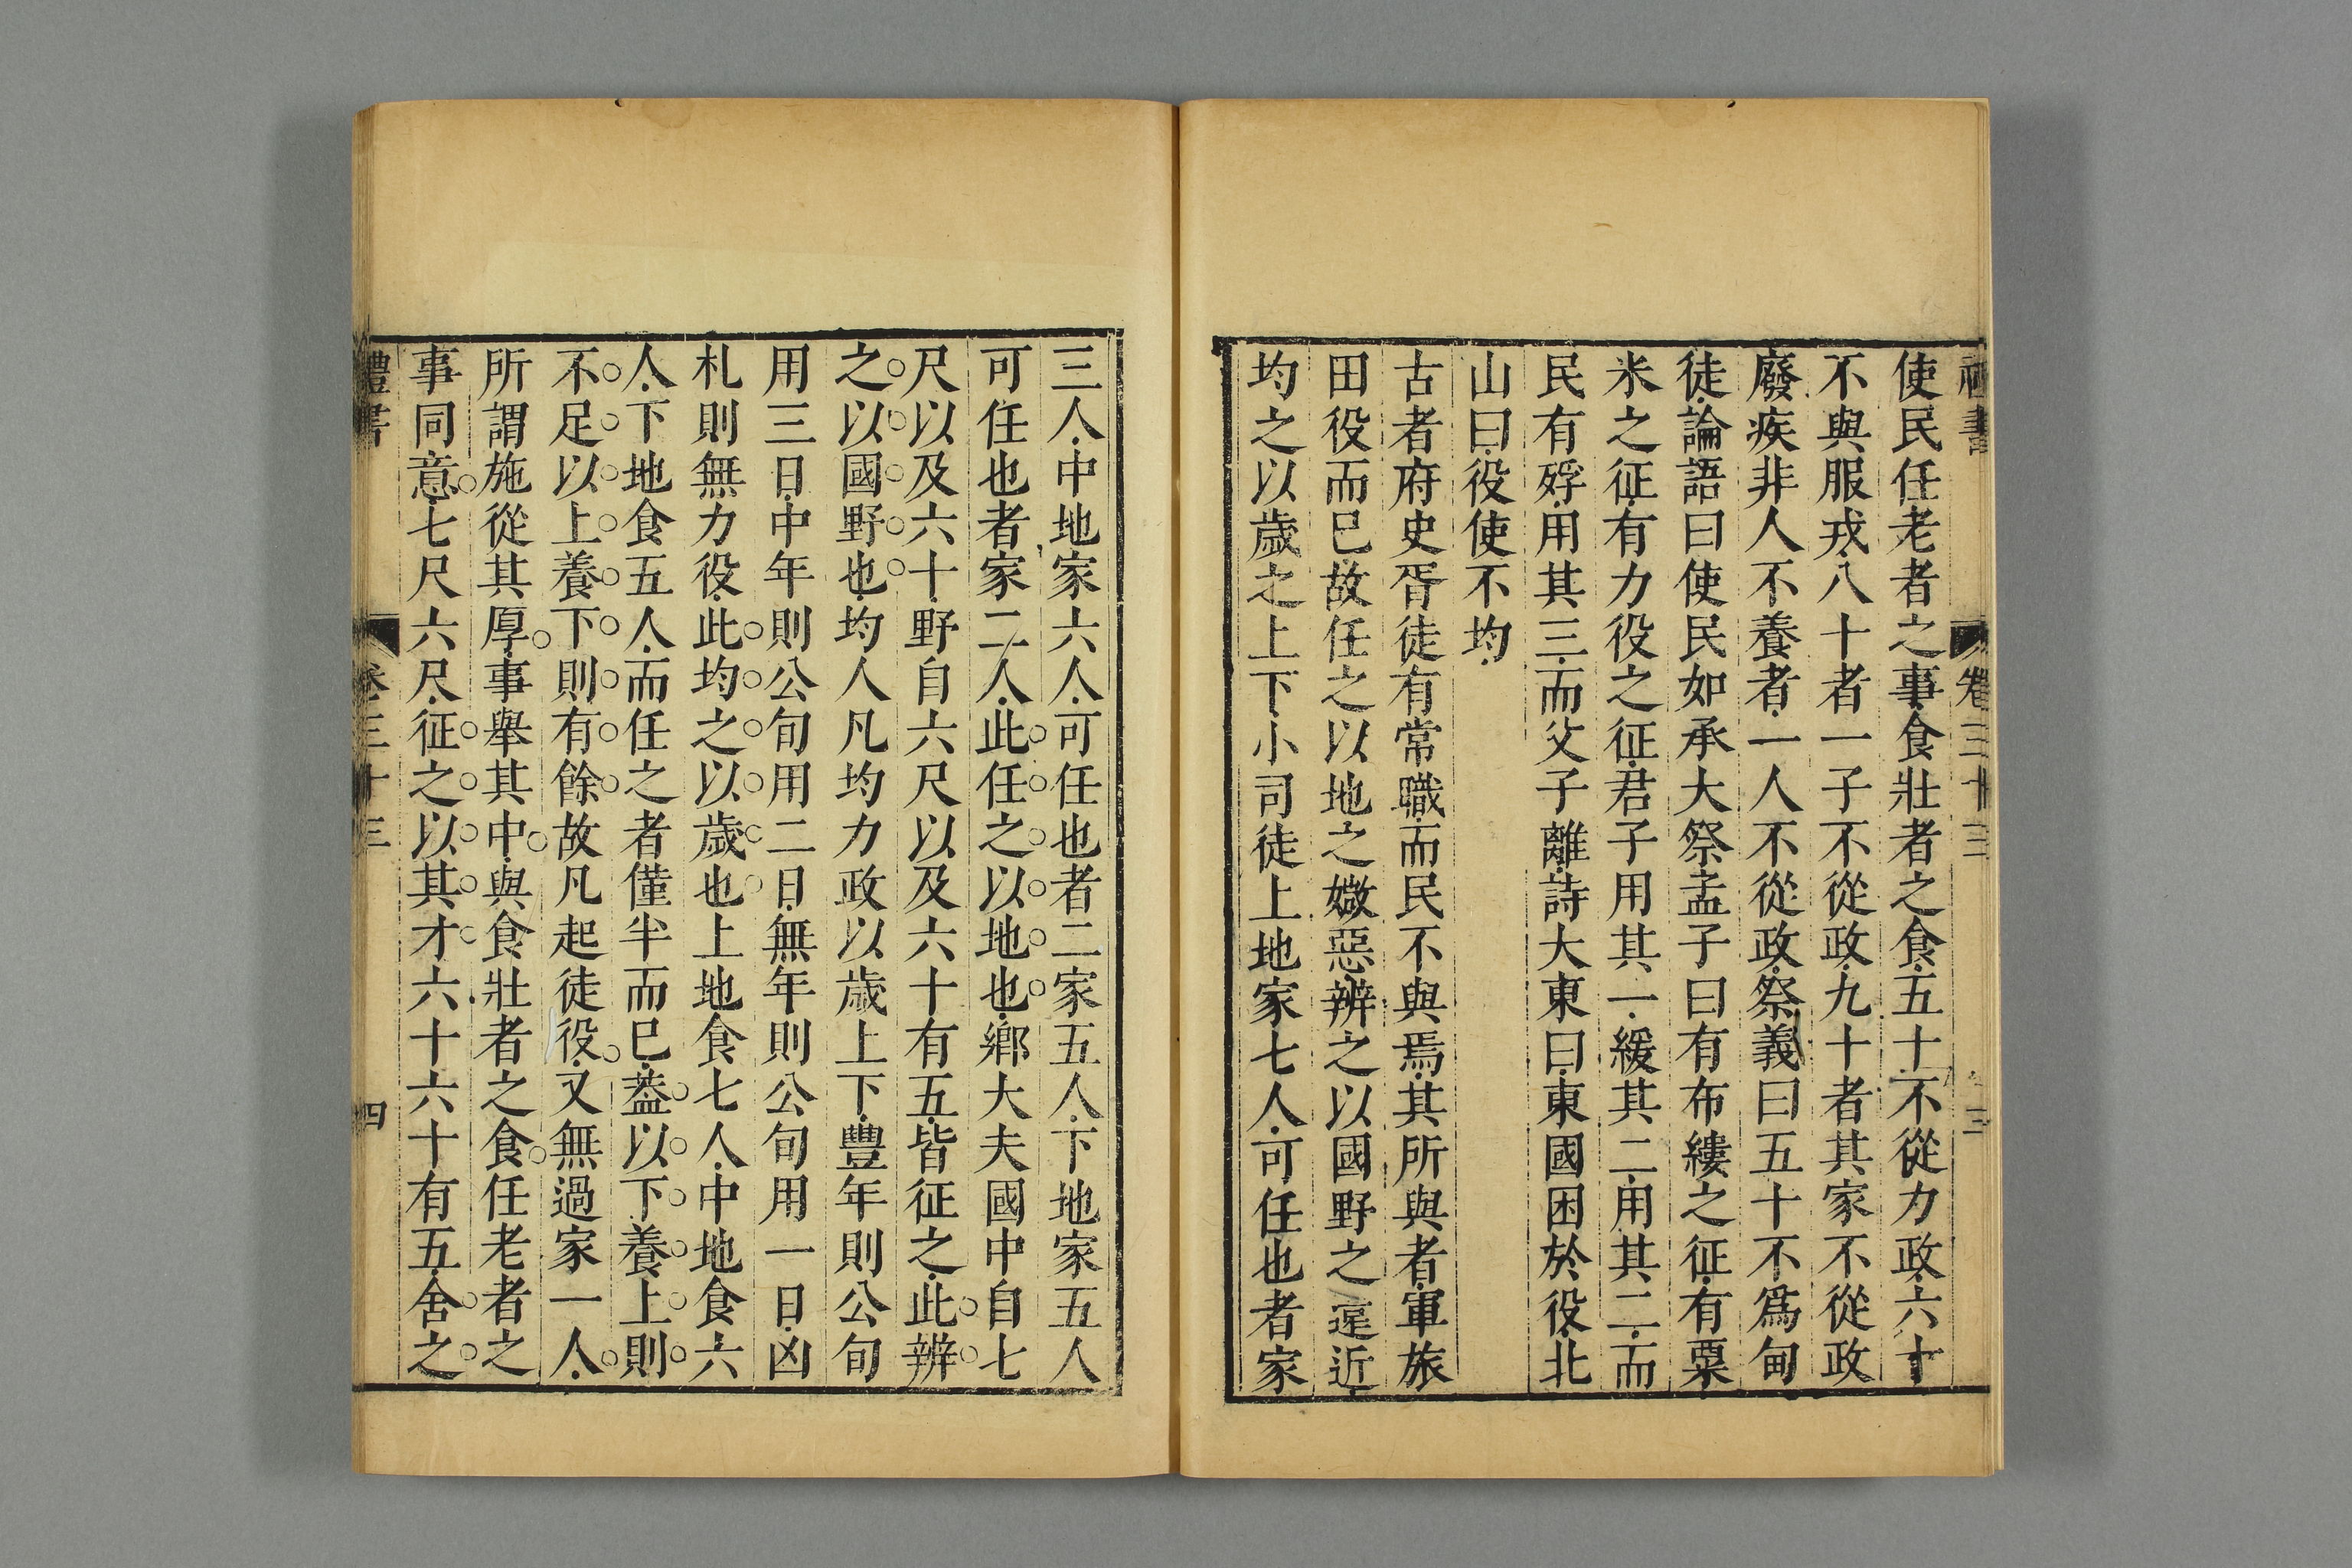 禮書 卷三十三 三
使民任老者之事食壯者之食五十不從力政六十
不與服戎八十者一子不從政九十者其家不從政
廢疾非人不養者一人不從政祭義曰五十不爲甸
徒論語曰使民如承大祭孟子曰有布縷之征有粟
米之征有力役之征君子用其一緩其二用其二而
民有殍用其三而父子離詩大東曰東國困於役北
山曰役使不均
古者府史胥徒有常職而民不與焉其所與者軍旅
田役而巳故任之以地之媺惡辨之以國野之遠近
均之以歲之上下小司徒上地家七人可任也者家
三人中地家六人可任也者二家五人下地家五人
可任也者家二人此任之以地也鄉大夫國中自七
尺以及六十野自六尺以及六十有五皆征之此辨
之以國野也均人凡均力政以歲上下豐年則公旬
用三日中年則公旬用二日無年則公旬用一日凶
札則無力役此均之以歲也上地食七人中地食六
人下地食五人而任之者僅半而巳葢以下養上則
不足以上養下則有餘故凡起徒役又無過家一人
所謂施從其厚事舉其中與食壯者之食任老者之
事同意七尺六尺征之以其才六十六十有五舍之
禮書 卷三十三 四